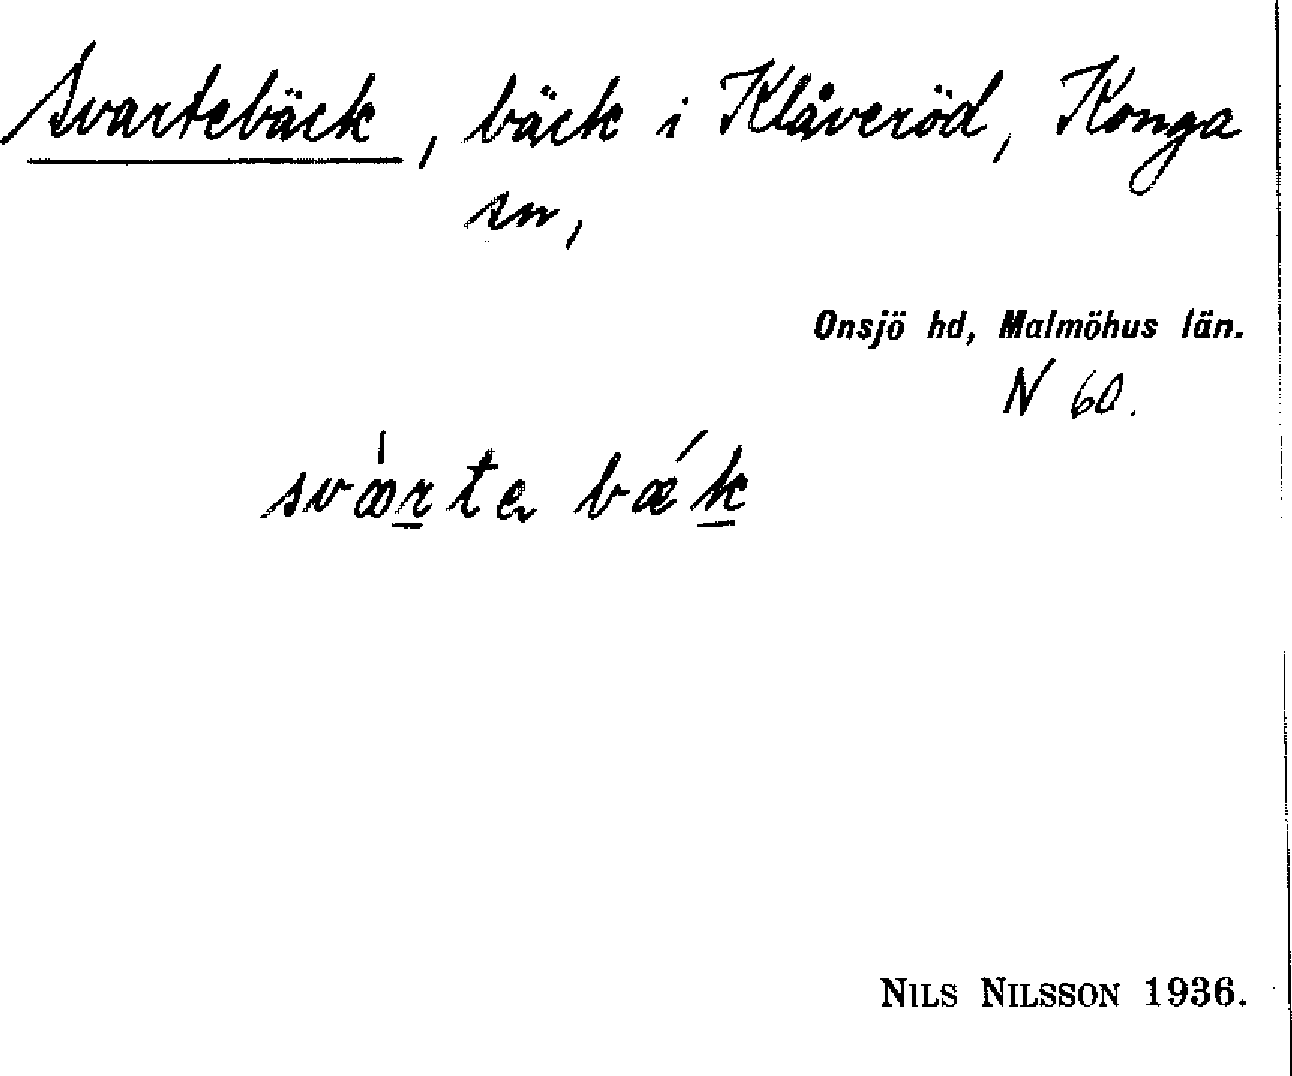 Svartebäck, bäck i Klåveröd, Konga
sn,
Onsjö hd, Malmöhus län.
N 60.
NILS NILSSON 1936.